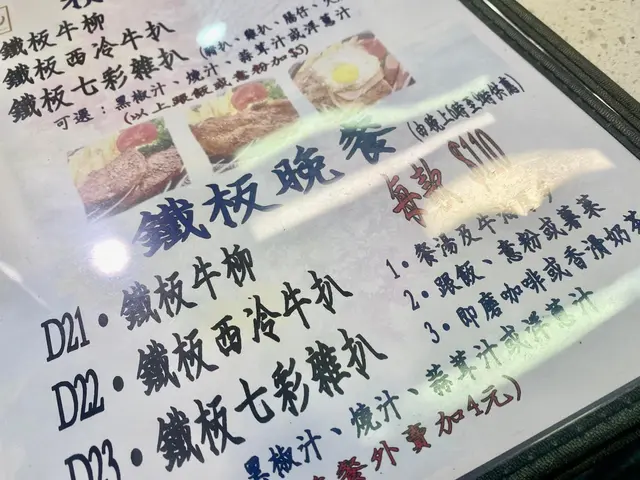 鐵板牛柳
鐵板西冷牛扒
鐵板七彩雜扒
可選：黑椒汁、燒汁、蒜茸汁或洋蔥汁
(以上跟飯或意粉加$5)
鐵板晚餐
每款 $110
D21．鐵板牛柳
D22．鐵板西冷牛扒
D23．鐵板七彩雜扒
1．餐湯及牛油
2．跟飯、意粉或薯菜
3．即磨咖啡或香滑奶茶
黑椒汁、燒汁、蒜茸汁或洋蔥汁
餐外賣加4元)